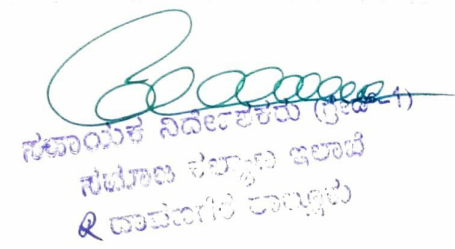 ಸಹಾಯಕ ನಿರ್ದೇಶಕರು (ಗ್ರೇಡ್-1)
ಸಮಾಜ ಕಲ್ಯಾಣ ಇಲಾಖೆ
ದಾವಣಗೆರೆ ತಾಲ್ಲೂಕು